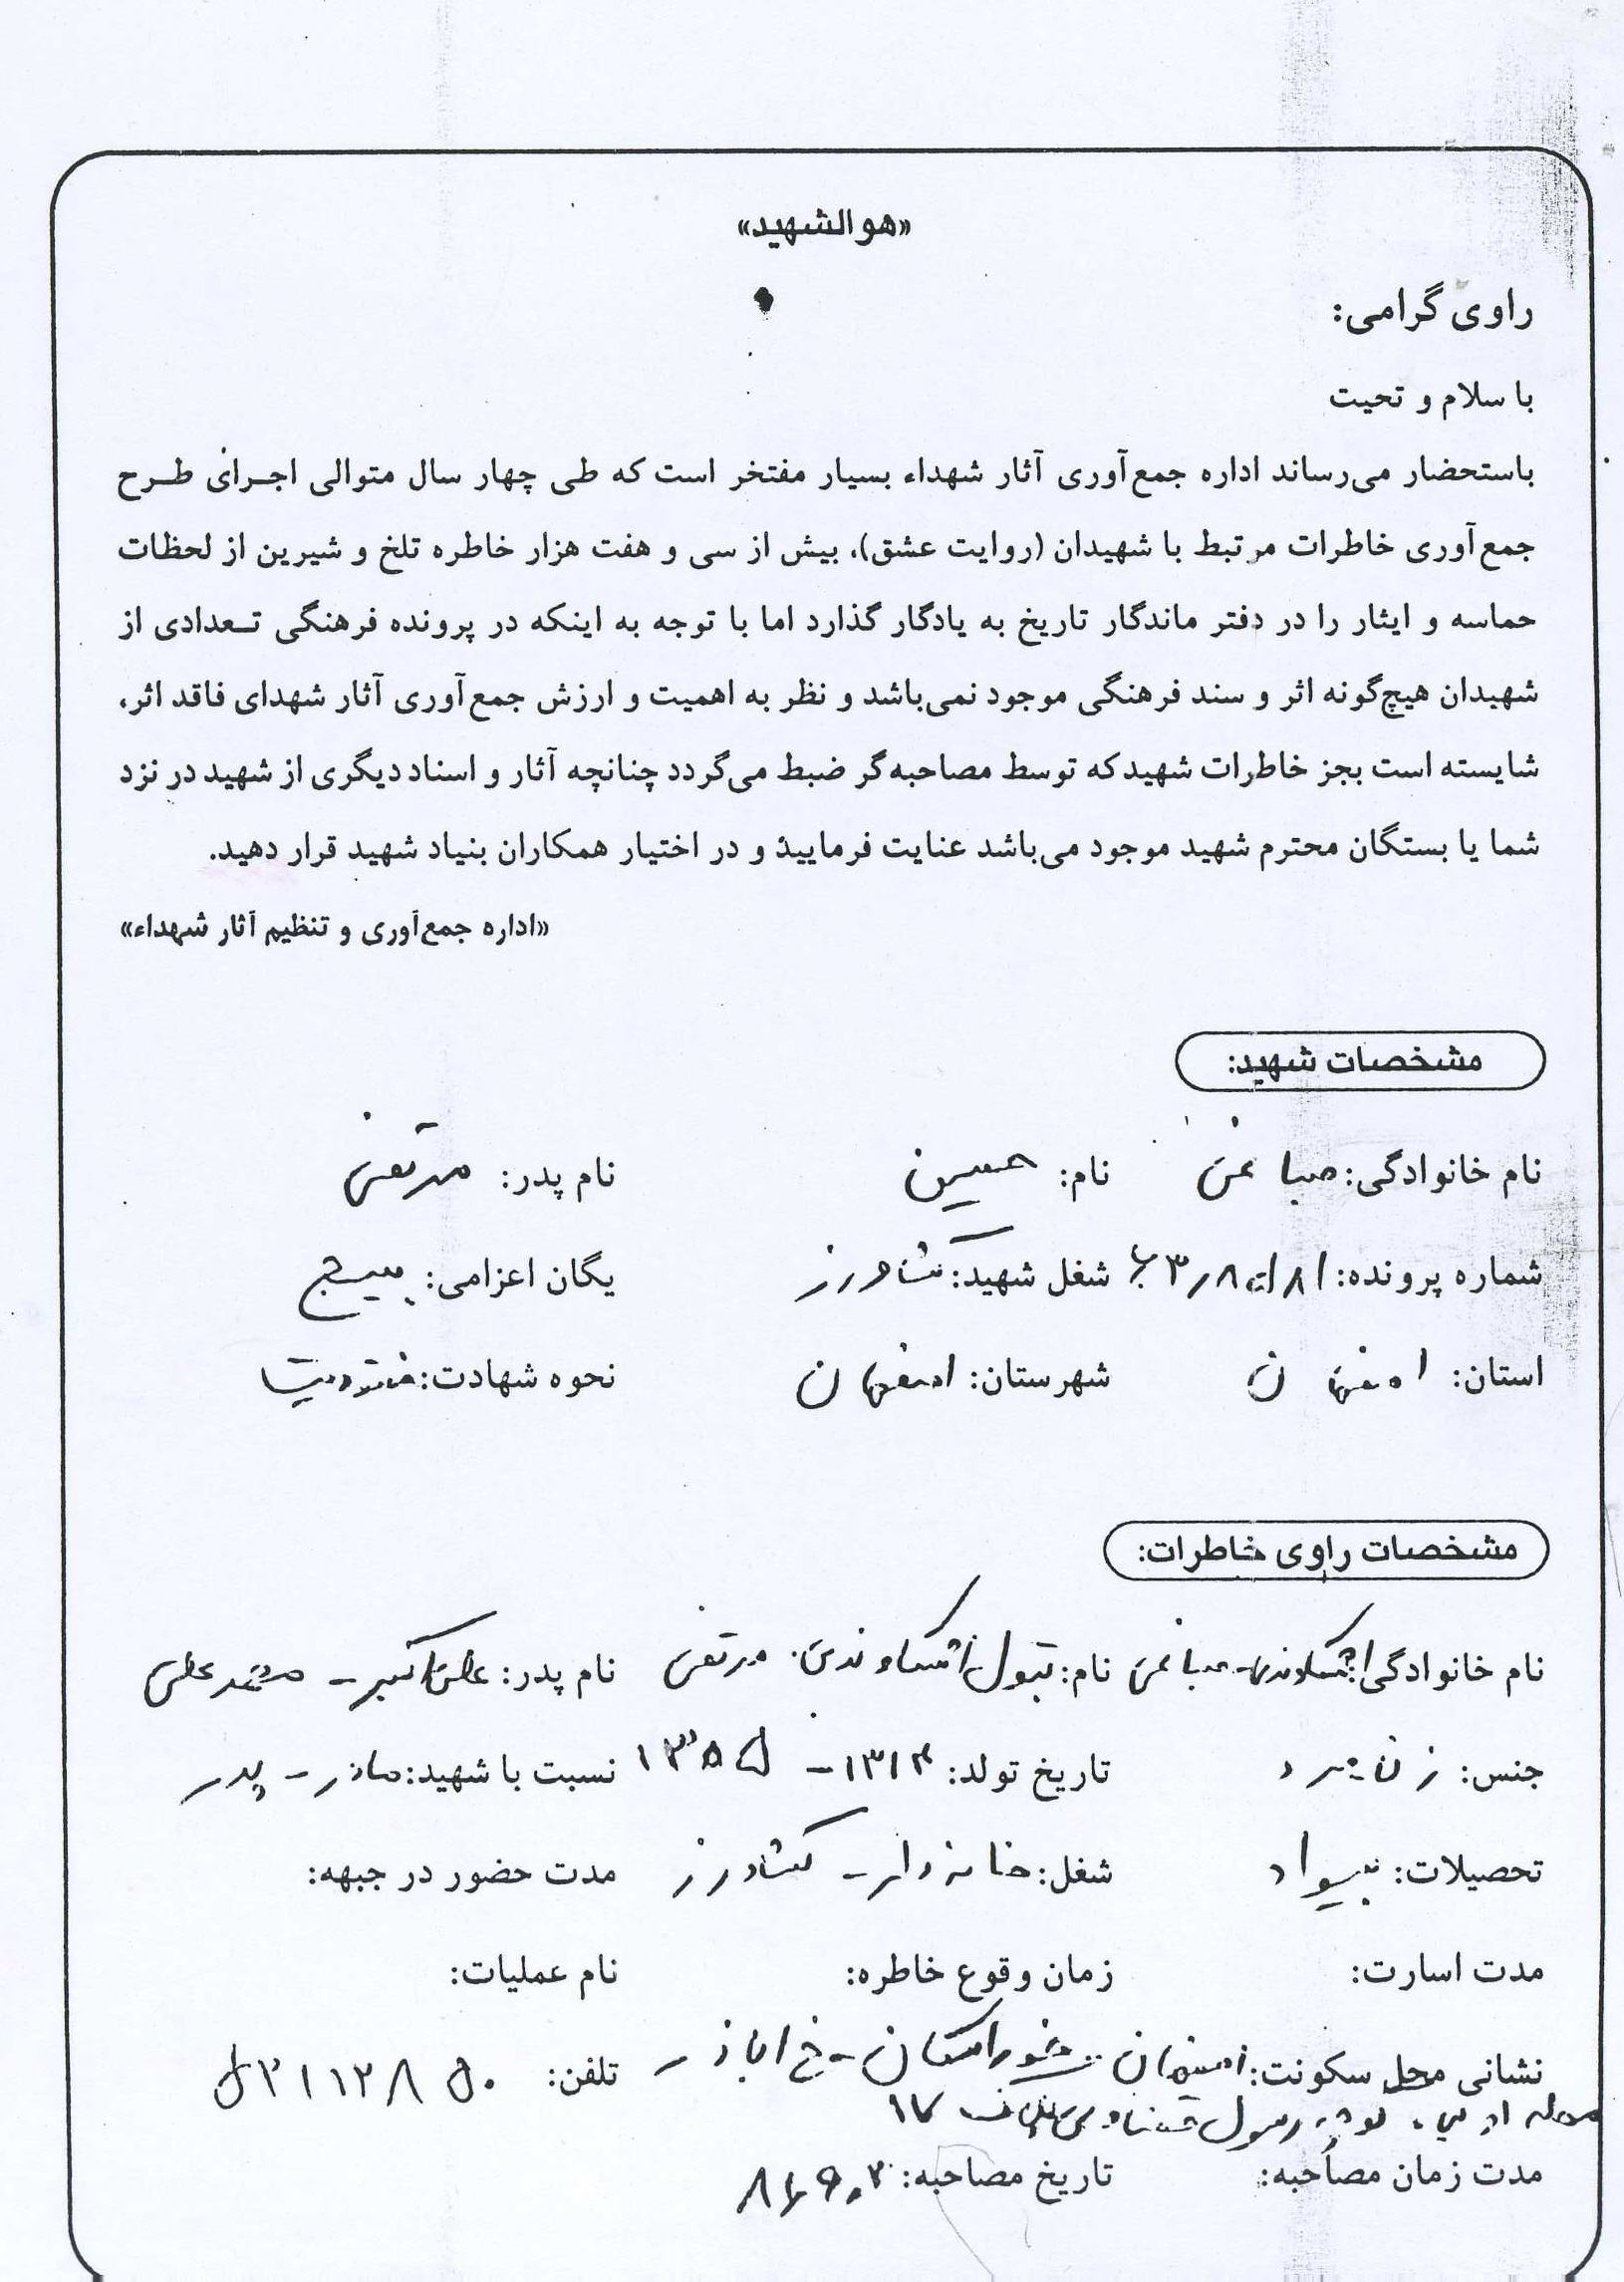 «هوالشهید»
راوی گرامی:
با سلام و تحیت
باستحضار می‌رساند اداره جمع‌آوری آثار شهداء بسیار مفتخر است که طی چهار سال متوالی اجرای طرح
جمع‌آوری خاطرات مرتبط با شهیدان (روایت عشق)، بیش از سی و هفت هزار خاطره تلخ و شیرین از لحظات
حماسه و ایثار را در دفتر ماندگار تاریخ به یادگار گذارد اما با توجه به اینکه در پرونده فرهنگی تعدادی از
شهیدان هیچ‌گونه اثر و سند فرهنگی موجود نمی‌باشد و نظر به اهمیت و ارزش جمع‌آوری آثار شهدای فاقد اثر،
شایسته است بجز خاطرات شهید که توسط مصاحبه‌گر ضبط می‌گردد چنانچه آثار و اسناد دیگری از شهید در نزد
شما یا بستگان محترم شهید موجود می‌باشد عنایت فرمایید و در اختیار همکاران بنیاد شهید قرار دهید.
«اداره جمع‌آوری و تنظیم آثار شهداء»
مشخصات شهید:
نام خانوادگی: صباغی نام: حسین نام پدر: مرتضی
شماره پرونده: شغل شهید: کشاورز یگان اعزامی: بسیج
استان: اصفهان شهرستان: اصفهان نحوه شهادت:
مشخصات راوی خاطرات:
نام خانوادگی: اشکاوندی - صباغی نام: بتول اشکاوندی مرتضی نام پدر: علی اکبر - محمد علی
جنس: زن - مرد تاریخ تولد: ۱۳۱۴ - نسبت با شهید: مادر - پدر
تحصیلات: بیسواد شغل: خانه دار - کشاورز مدت حضور در جبهه:
مدت اسارت: زمان وقوع خاطره: نام عملیات:
نشانی محل سکونت: اصفهان - خوراسگان - خ اباذر - تلفن:
محله رسول ۱۷
مدت زمان مصاحبه: تاریخ مصاحبه: